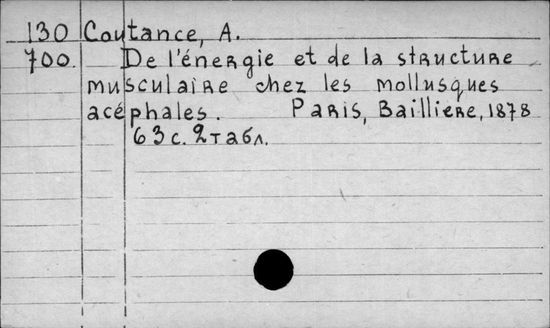 130 Coutance, A.
700. De l'énergie et de la structure
musculaire chez les mollusques
acéphales. Paris, Bailliere, 1878
63 с. 2 табл.